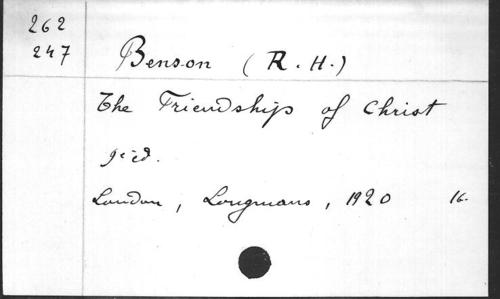 262
247
Benson (R. H.)
The Friendship of Christ
9e éd.
London, Longmans, 1920 16.